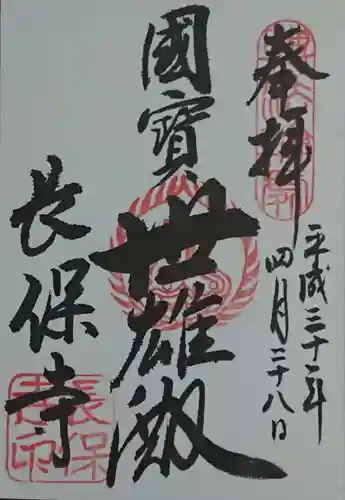 奉拝
平成三十一年
四月二十八日
國寶
世雄殿
長保寺
長保
寺印